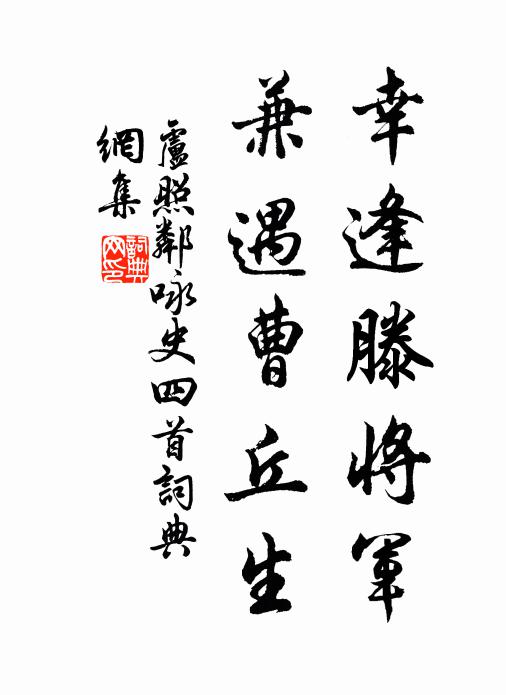 幸逢滕將軍
兼遇曹丘生
盧照鄰咏史四首詞典
網集
詞典網印